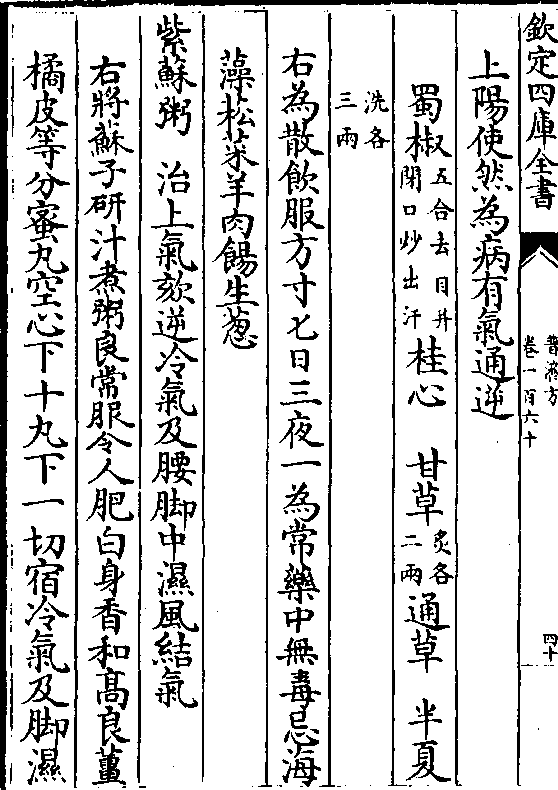 欽定四庫全書
普濟方
卷一百六十
四十
上陽使然為病有氣通逆
蜀椒五合去目并閉口炒出汗桂心 甘草炙各二兩通草 半夏
洗各三兩
右為散飲服方寸匕日三夜一為常藥中無毒忌海
藻菘菜羊肉餳生葱
紫蘇粥 治上氣欬逆冷氣及腰脚中濕風結氣
右將蘇子研汁煮粥良常服令人肥白身香和髙良薑
橘皮等分蜜丸空心下十丸下一切宿冷氣及脚濕